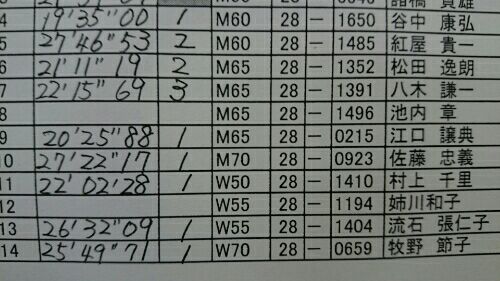 4 19'35"00 1 M60 28 — 1650 谷中 康弘
5 27'46"53 2 M60 28 — 1485 紅屋 貴一
6 21'11"19 2 M65 28 — 1352 松田 逸朗
7 22'15"69 3 M65 28 — 1391 八木 謙一
8 M65 28 — 1496 池内 章
9 20'25"88 1 M65 28 — 0215 江口 譲典
10 27'22"17 1 M70 28 — 0923 佐藤 忠義
11 22'02'28 1 W50 28 — 1410 村上 千里
12 W55 28 — 1194 姉川和子
13 26'32"09 1 W55 28 — 1404 流石 張仁子
14 25'49"71 1 W70 28 — 0659 牧野 節子